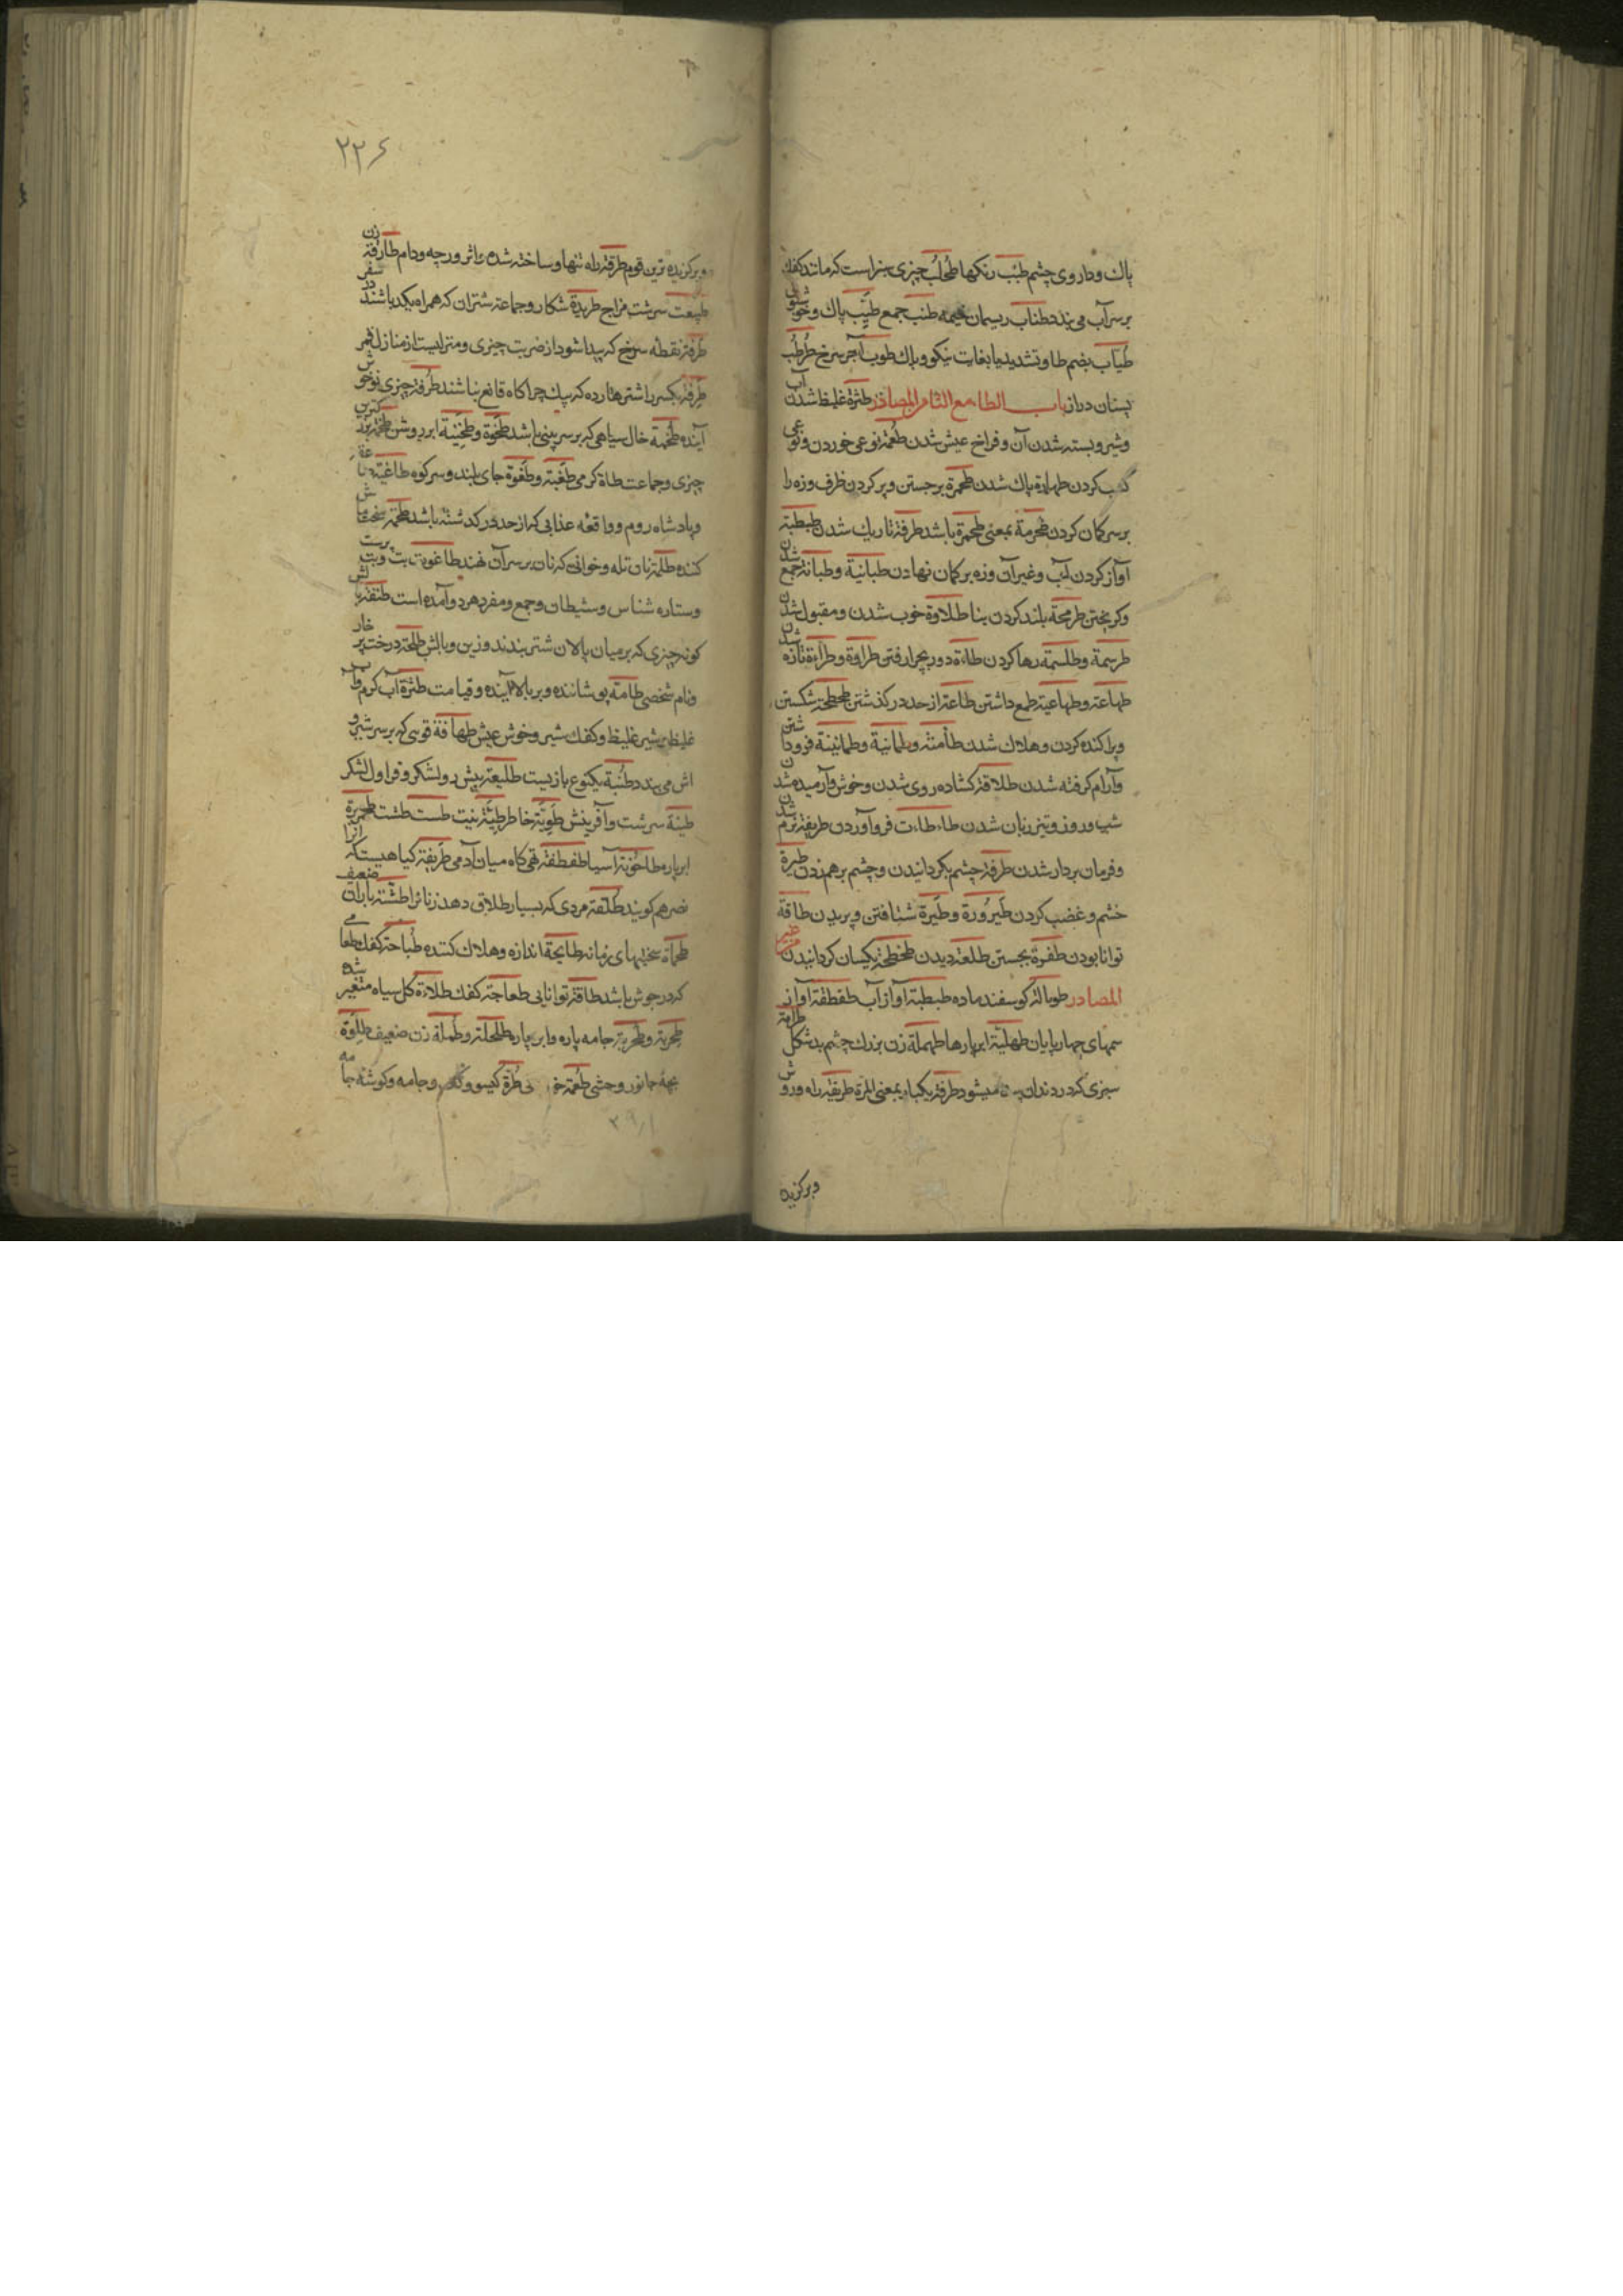 پاك و داروی چشم طبب رنكها طحلب چیزی سبز است كه مانند كفك
بر سر آب می بندد طناب ریسمان خیمه طنب جمع طیب پاك و خوش
طیاب بضم طا و تشدید یا بغایت نیكو و پاك طوب آجر سرخ طرطب
پستان دراز باب الطاء مع التاء من المصادر طثرة غلیظ شدن آب
و شیر و بسته شدن آن و فراخ عیش شدن طعمة نوعی خوردن و نوعی
كسب كردن طهارة پاك شدن طحمرة برجستن و پر كردن ظرف و زه را
بر سر كمان كردن طحرمة بمعنی طحمرة باشد طرفة تاریك شدن طبطبة
آواز كردن آب و غیر آن و زه بر كمان نهادن طبانیة و طبانة جمع شدن
و كریختن طرمحة بلند كردن بنا طلاوة خوب شدن و مقبول شدن
طرسمة و طلسمة رها كردن طاءة دور بچرا رفتن طراوة و طراءة تازه شدن
طماعة و طماعیة طمع داشتن طاعة از حد در كذشتن طحطحة شكستن
و پراكنده كردن و هلاك شدن طأمنة و طمانیة و طمانینة فرو داشتن
و آرام كرفته شدن طلاقة كشاده روی شدن و خوش و آرمیده شدن
شب و روز و تیز زبان شدن طاءطاءت فرو آوردن طریقة نرم شدن
و فرمان بردار شدن طرفة چشم بكردانیدن و چشم بر هم زدن طیرة
خشم و غضب كردن طیرورة و طیرة شتافتن و پریدن طاقة
توانا بودن طفرة بجستن طلعة دیدن طحطحة یكسان كردانیدن من غیر
المصادر طوبالة كوسفند ماده طبطبة آواز آب طقطقة آواز
سمهای چهارپایان طهلیة ابر پارها طهملة زن بزرك چشم بدشكل طرامة
سبزی كه در دندان میشود طرفة یكبار بمعنی المرة طریقة راه و روش
و بركزیده
۲۲۶
و بركزیده ترین قوم طرقة راه تنها و ساخته شده و اثر و رجه و دام طارقة زن
طبیعت سرشت مزاج طریدة شكار و جماعة شتران كه همراه یكدیكر باشند در سفر
طرفة نقطه سرخ كه پیدا شود از ضربت چیزی و منزلیست از منازل قمر
طرفة بكسر را شتر هار ده كه بیك چراكاه قانع نباشد طرفة چیزی نو خوش
آینده طخمة خال سیاهی كه بر سر بینی باشد طخوة و طخیة ابر روشن طخمة بزركترین
چیزی و جماعت طاة كرمی طغیة و طغوة جای بلند و سر كوه طاغیة
و پادشاه روم و واقعه عذابی كه از حد در كذشته باشد طحمة سخت
كننده طلمة نان تله و خوانی كه نان بر سر آن نهند طاغوت بت و بت پرست
و ستاره شناس و شیطان و جمع و مفرد هر دو آمده است طنفسة بالش
كونه چیزی كه بر میان پالان شتر بندند و زین و بالش طلحة درخت پر خار
و نام شخصی طامة پوشاننده و بر بالا آینده و قیامت طثرة آب كرم و آب
غلیظ و شیر غلیظ و كفك شیر و خوش عیش طهافة قوسی كه بر سر شیر و
آش می بندد طنبة یكنوع بازیست طلیعة پیش رو لشكر و قراول لشكر
طینة سرشت و آفرینش طویة خاطر طیة نیت طست طشت طحمریرة
ابر پاره طاحونة آسیا طفطفة تهی كاه میان آدمی طریفة كیاهیست كه آنرا
نصر هم كویند طلقة مردی كه بسیار طلاق دهد زنانرا طشة باران ضعیف
طمأة سختیهای زمانه طایحة اندازه و هلاك كننده طباخة كفك طعامی
كه در جوش باشد طاقة توانایی طعاجة كفك طلاءة كل سیاه متغیر شده
طحربة و طحریة جامه پاره و ابر پاره طلحلة و طملة زن ضعیف طلوة
بچه جانور وحشی طعمة طرة كیسو و جامه و كوشه جامه